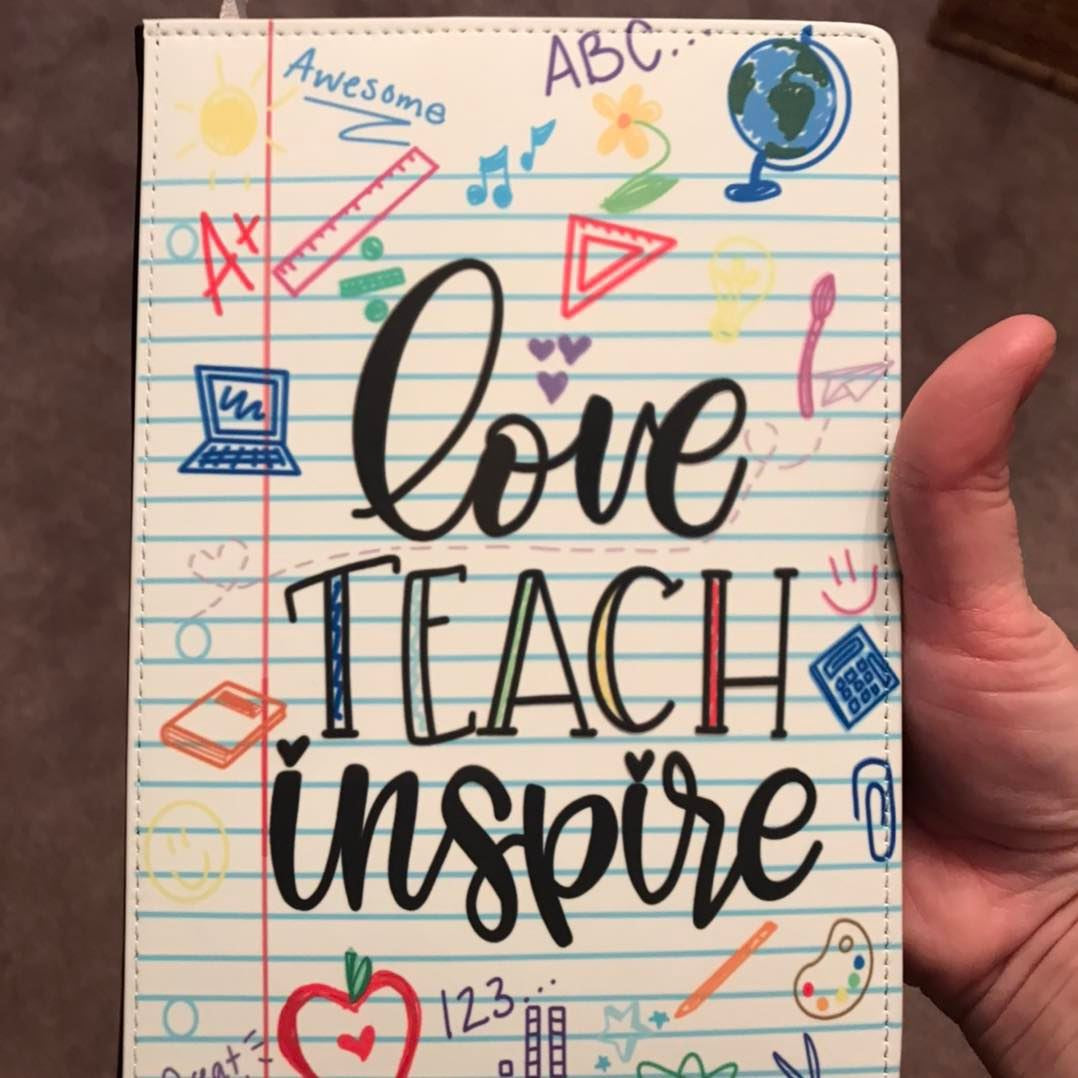 Awesome
ABC...
A+
love
TEACH
inspire
123...
Great